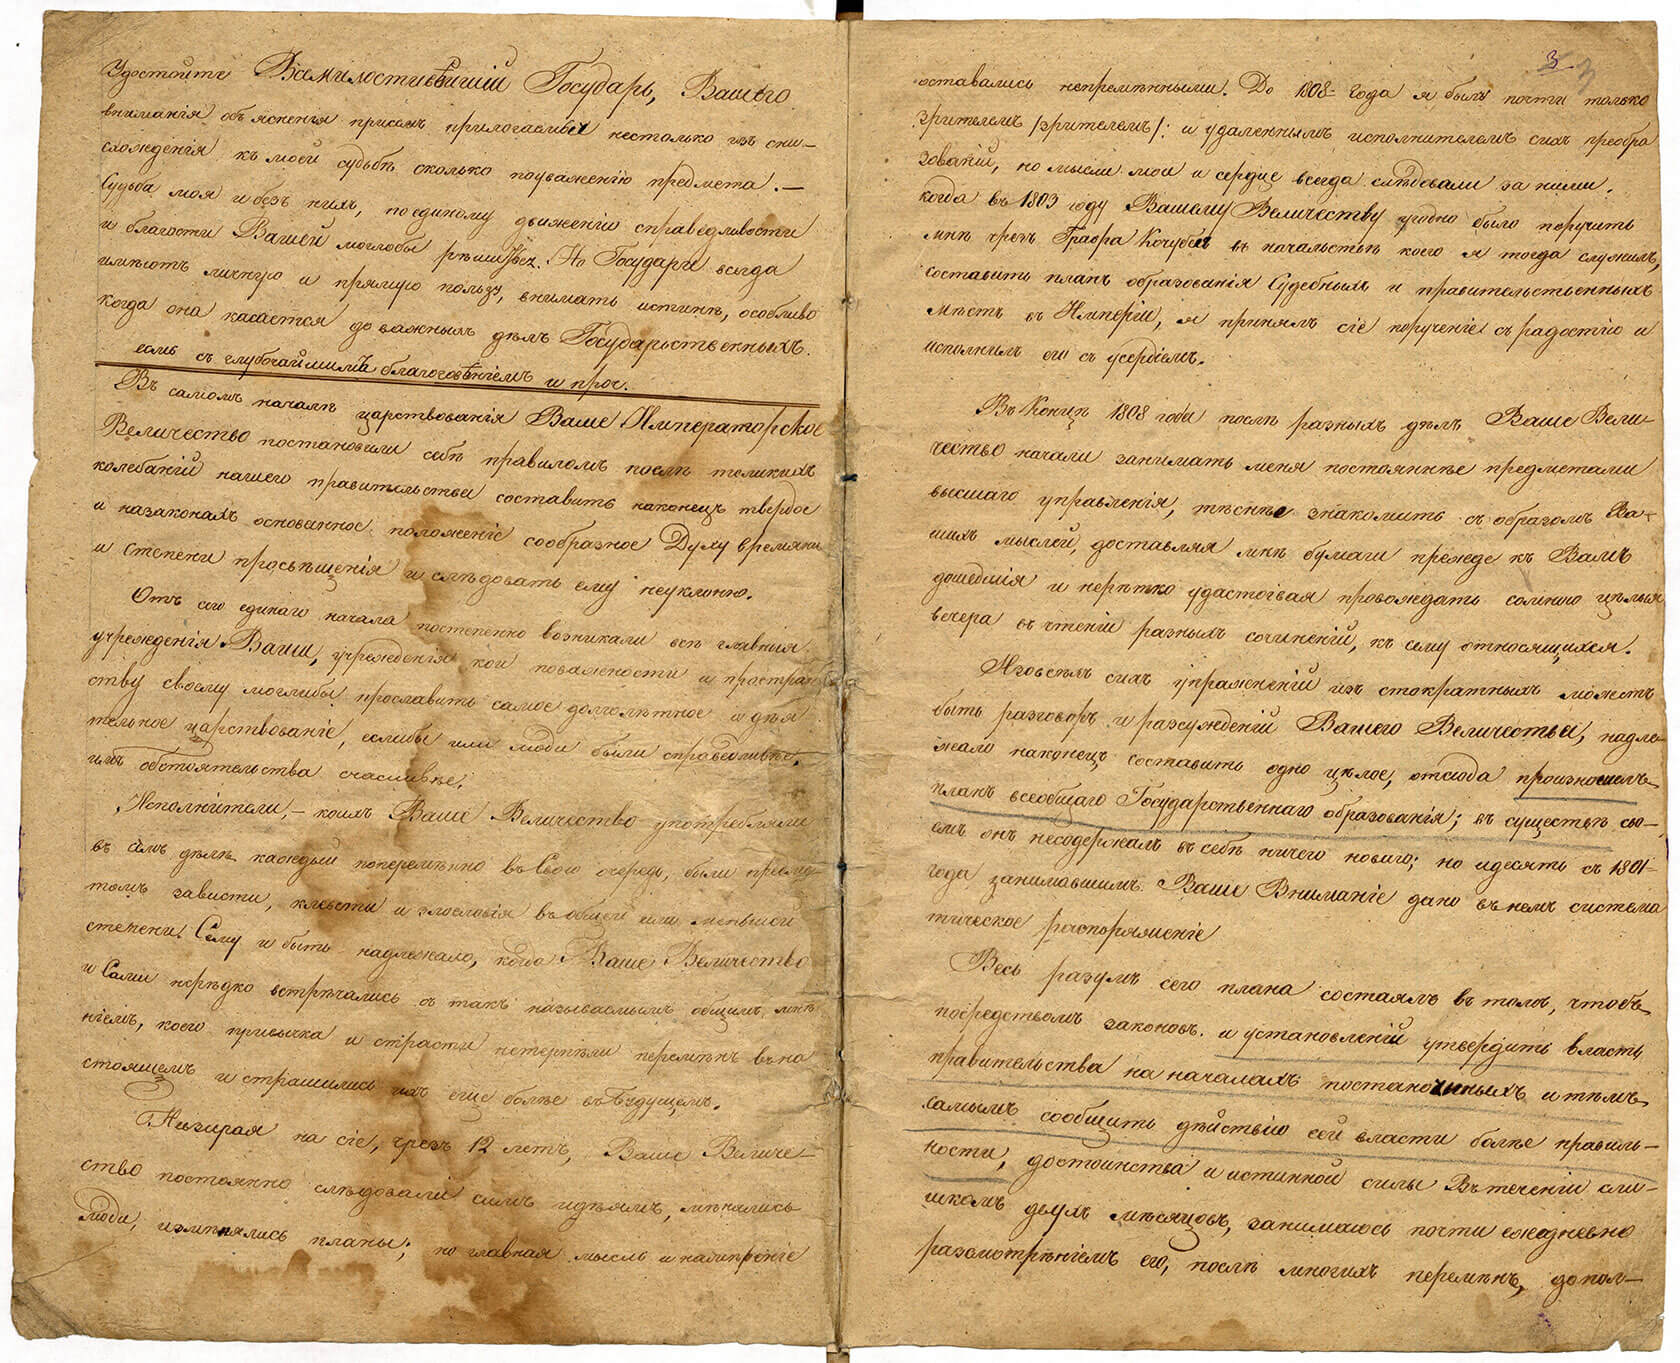 Удостойте Всемилостивѣйшій Государь, Вашего
вниманія объясненія присемъ прилогаемыя нестолько изъ сни-
схожденія къ моей судьбѣ сколько поуваженію предмета. —
Судьба моя и безъ нихъ, поединому движенію справедливости
и благости Вашей моглобы рѣшиться. Но Государи всегда
имѣютъ личную и прямую пользу, внимать истинѣ, особливо
когда она касается до важныхъ дѣлъ Государственныхъ.
есмь съ глубочайшимъ благоговѣніемъ и проч.
Въ самомъ началѣ царствованія Ваше Императорское
Величество постановили себѣ правиломъ послѣ толикихъ
колебаній нашего правительства составить наконецъ твердое
и назаконахъ основанное положеніе сообразное Духу времяни
и степени просвѣщенія и слѣдовать ему неуклонно.
Отъ сего единаго начала постепенно возникали всѣ главныя
учрежденія Ваши, учрежденія кои поважности и простран-
ству своему моглибы прославить самое долголѣтное и дѣя
тельное царствованіе, еслибы или люди были справедливѣе,
или обстоятельства счасливѣе.
Исполнители, — коихъ Ваше Величество употребляли
въ семъ дѣлѣ каждый поперемѣнно въ Свою очередь, были предме-
томъ зависти, клевѣти и злословія въ общей или меньшой
степени. Сему и быть надлежало, когда Ваше Величество
и Сами нерѣдко встрѣчались съ такъ называемымъ общимъ мнѣ
ніемъ, коего привычка и страсти нетерпѣли перемѣнъ въ на
стоящемъ и страшились ихъ еще болѣе въ Будущемъ.
Невзирая на сіе, чрезъ 12 летъ, Ваше Величе-
ство постоянно слѣдовали симъ идѣямъ, мѣнялись
люди, измѣнялись планы; но главная мысль и намѣреніе
3
оставались непремѣнными. До 1808- года я былъ почти только
зрителемъ /зрителемъ/: и удаленнымъ исполнителемъ сихъ преобра
зованій, но мысли мои и сердце всегда слѣдовали за ними.
когда въ 1803 году Вашему Величеству угодно было поручить
мнѣ чрезъ Графа Кочубея въ начальствѣ коего я тогда служилъ,
составить планъ образованія Судебныхъ и правительственныхъ
мѣстъ въ Имперіи, я принялъ сіе порученіе съ радостію и
исполнилъ его съ усердіемъ.
Въ Концѣ 1808 года послѣ разныхъ дѣлъ Ваше Вели-
чество начали занимать меня постояннѣе предметами
высшаго управленія, тѣснѣе знакомить съ образомъ Ва-
шихъ мыслей, доставляя мнѣ бумаги прежде къ Вамъ
дошедшія и нерѣтко удостоивая провождать сомною цѣлыя
вечера въ чтеніи разныхъ сочиненій, къ сему относящихся.
Изовсѣхъ сихъ упражненій изъ стократныхъ можетъ
быть разговоръ и разсужденій Вашего Величества, надле-
жало наконецъ составить одно цѣлое, отсюда произошелъ
планъ всеобщаго Государственнаго образованія; въ существѣ сво-
емъ онъ несодержалъ въ себѣ ничего новаго; но идеямъ съ 1801-
года занимавшимъ Ваше Вниманіе дано въ немъ система
тическое распоряженіе
Весь разумъ сего плана состоялъ въ томъ, чтобъ
посредствомъ законовъ и установленій утвердить власть
правительства на началахъ постоянныхъ и тѣмъ
самымъ сообщить дѣйствію сей власти болѣе правиль-
ности, достоинства и истинной силы Въ теченіи сли-
шкомъ двухъ мѣсяцовъ, занимаюсь почти ежедневно
разсмотрѣніемъ его, послѣ многихъ перемѣнъ, допол-